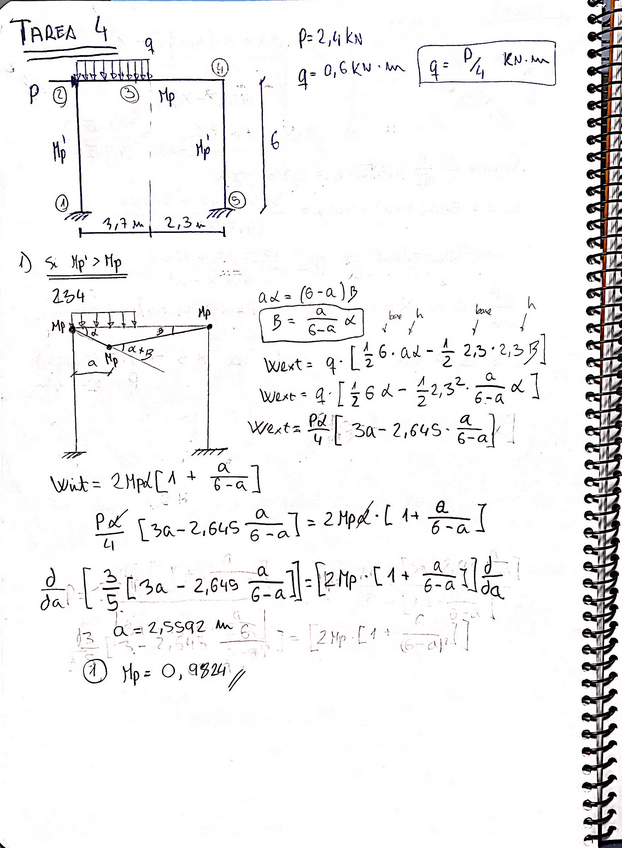 TAREA 4
q
P = 2,4 kN
q = 0,6 KN·m
q = P/4 KN·m
P
②
③
Mp
④
Mp'
Mp'
6
①
⑤
3,7 m
2,3 m
1) Si Mp' > Mp
234
Mp
α
β
Mp
Mp
α+β
a
aα = (6-a)β
β = a/(6-a) α
base
h
base
h
Wext = q·[1/2 6·aα - 1/2 2,3·2,3 β]
Wext = q·[1/2 6 α - 1/2 2,3²· a/(6-a) α]
Wext = Pα/4 [3a - 2,645· a/(6-a)]
Wint = 2Mpα[1 + a/(6-a)]
Pα/4 [3a - 2,645 a/(6-a)] = 2Mpα·[1 + a/(6-a)]
d/da [3/5 [3a - 2,645 a/(6-a)]] = [2Mp·[1 + a/(6-a)]] d/da
a = 2,5592 m
① Mp = 0,9824